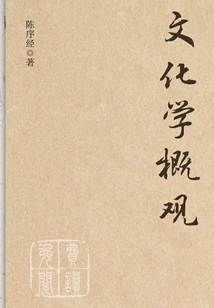 文化学概观
陈序经◎著